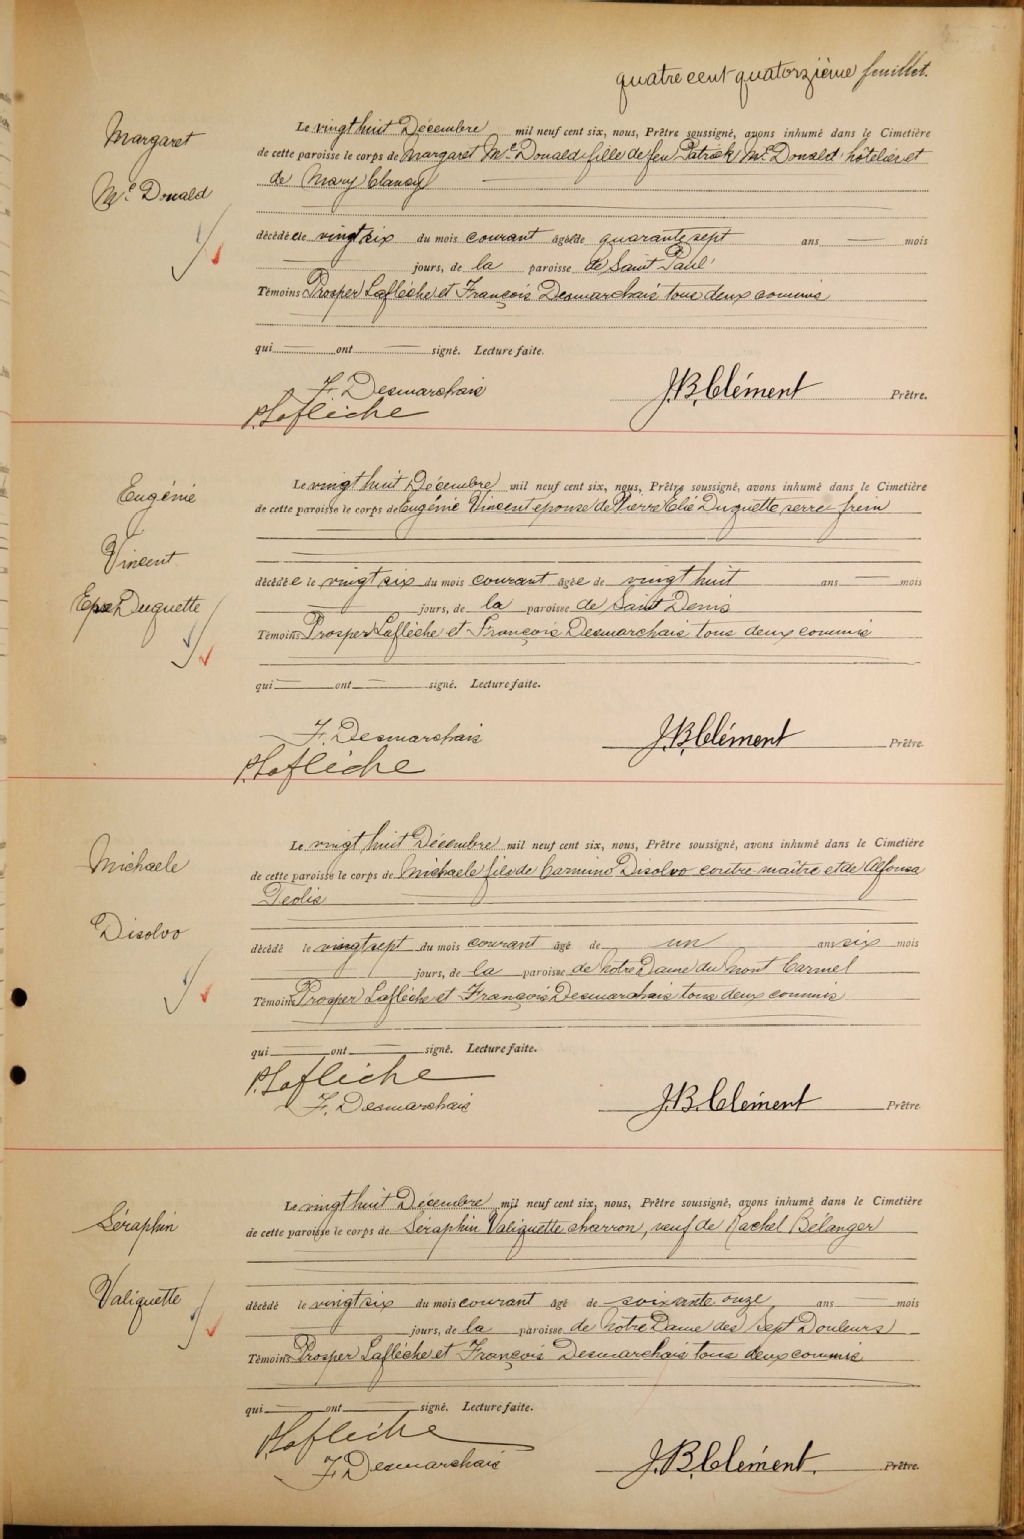 quatre cent quatorzième feuillet.
Margaret
Mc Donald
Le vingt huit Décembre mil neuf cent six, nous, Prêtre soussigné, avons inhumé dans le Cimetière
de cette paroisse le corps de Margaret Mc Donald fille de feu Patrick Mc Donald hôtelier et
de Mary Clancy
décédée le vingt six du mois courant âgée de quarante sept ans — mois
jours, de la paroisse de Saint Paul
Témoins Prosper Laflèche et François Desmarchais tous deux commis
qui — ont — signé. Lecture faite.
F. Desmarchais
P. Laflèche
J.B. Clément Prêtre.
Eugénie
Vincent
Epse Duquette
Le vingt huit Décembre mil neuf cent six, nous, Prêtre soussigné, avons inhumé dans le Cimetière
de cette paroisse le corps de Eugénie Vincent epouse de Pierre Elie Duquette serre frein
décédée le vingt six du mois courant âgée de vingt huit ans — mois
jours, de la paroisse de Saint Denis
Témoins Prosper Laflèche et François Desmarchais tous deux commis
qui — ont — signé. Lecture faite.
F. Desmarchais
P. Laflèche
J.B. Clément Prêtre.
Michaele
Disolvo
Le vingt huit Décembre mil neuf cent six, nous, Prêtre soussigné, avons inhumé dans le Cimetière
de cette paroisse le corps de Michaele fils de Carmino Disolvo contre maître et de Alfonsa
Teolis
décédé le vingt sept du mois courant âgé de un ans six mois
jours, de la paroisse de Notre Dame du Mont Carmel
Témoins Prosper Laflèche et François Desmarchais tous deux commis
qui — ont — signé. Lecture faite.
P. Laflèche
F. Desmarchais
J.B. Clément Prêtre.
Séraphin
Valiquette
Le vingt huit Décembre mil neuf cent six, nous, Prêtre soussigné, avons inhumé dans le Cimetière
de cette paroisse le corps de Séraphin Valiquette charron, veuf de Rachel Bélanger
décédé le vingt six du mois courant âgé de soixante onze ans — mois
jours, de la paroisse de Notre Dame des Sept Douleurs
Témoins Prosper Laflèche et François Desmarchais tous deux commis
qui — ont — signé. Lecture faite.
P. Laflèche
F. Desmarchais
J.B. Clément. Prêtre.